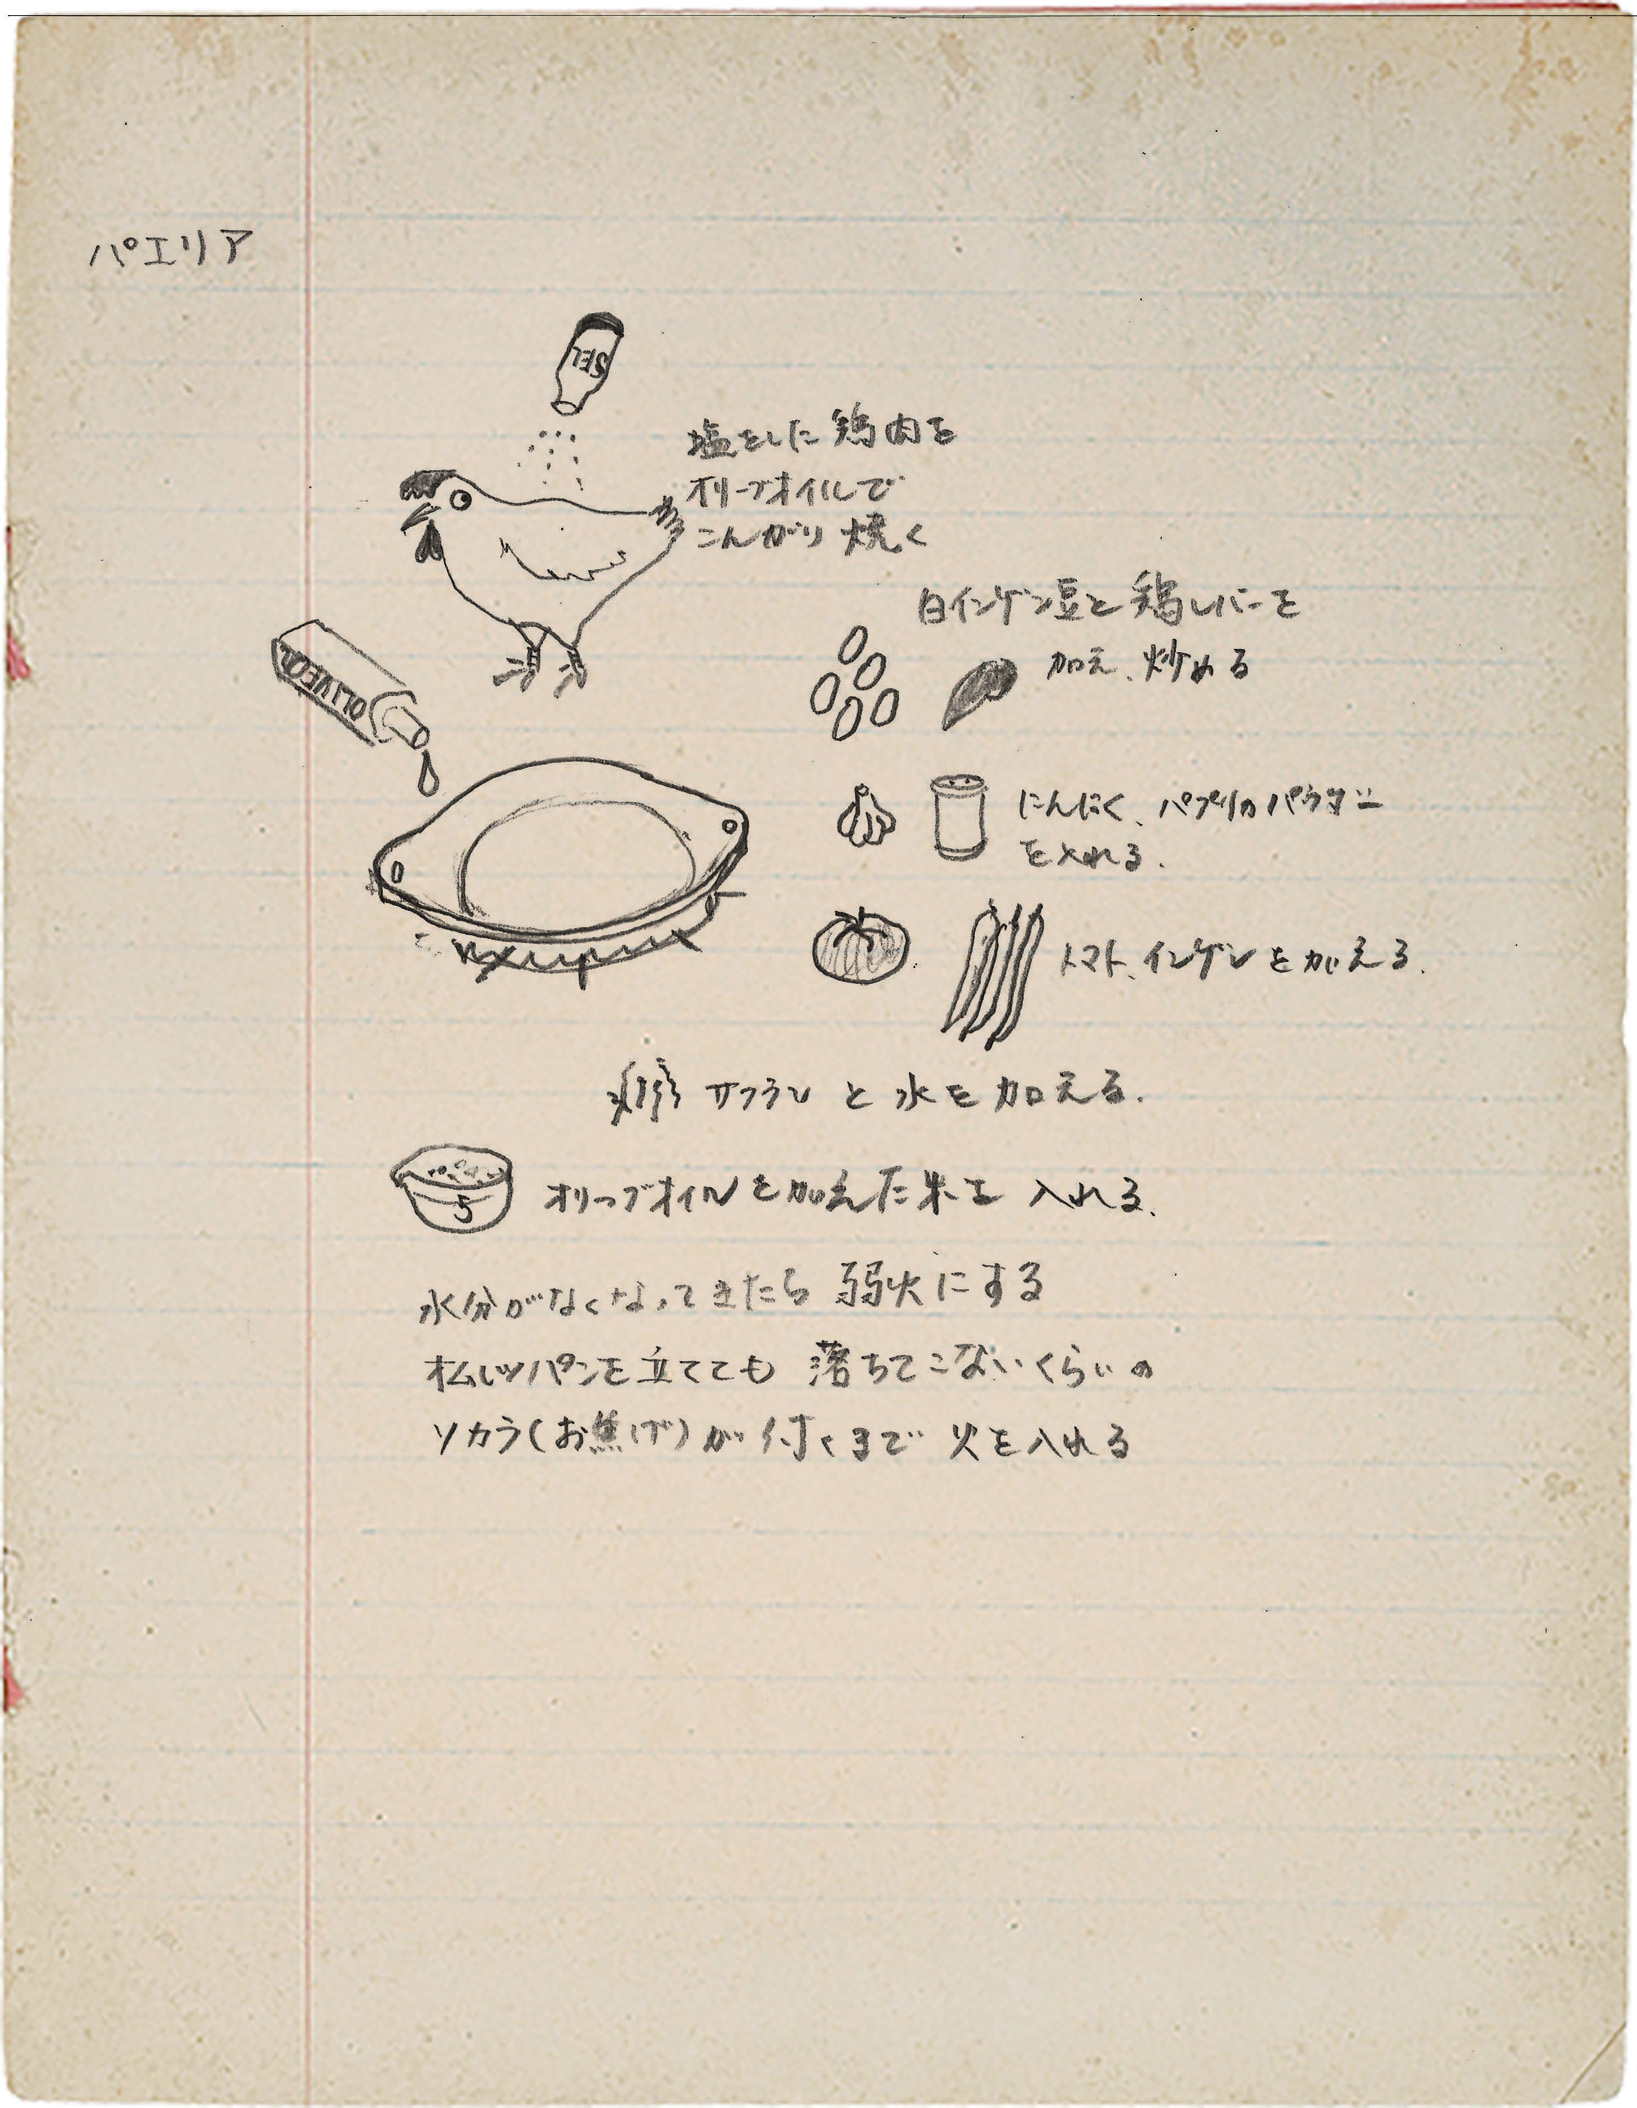 パエリア
SEL
塩をした鶏肉を
オリーブオイルで
こんがり焼く
白インゲン豆と鶏レバーを
加え、炒める
OLIVEOIL
にんにく、パプリカパウダー
を入れる.
トマト、インゲンを加える.
サフランと水を加える.
5
オリーブオイルを加えた米を入れる.
水分がなくなってきたら弱火にする
パンを立てても落ちてこないくらいの
ソカラ(お焦げ)が付くまで火を入れる